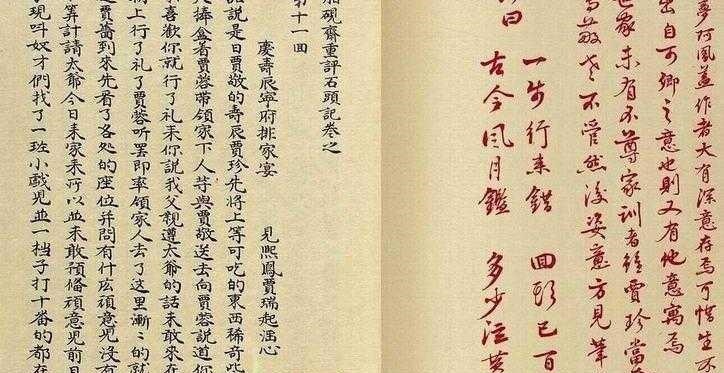 夢阿鳳蓋作者大有深意存焉可惜生不
出自可卿之意也則又有他意寓焉
世家未有不尊家訓者雖賈珍當
敬老不管然後姿意方見筆
曰
一步行來錯 回頭已百
古今風月鑑 多少泣黃
脂硯齋重評石頭記卷之
第十一回
慶壽辰寧府排家宴 見熙鳳賈瑞起淫心
話說是日賈敬的壽辰賈珍先將上等可吃的東西稀奇些
大捧盒着賈蓉帶領家下人等與賈敬送去向賈蓉說道你
喜歡你就行了礼来你說我父親遵太爺的話未敢來在
上行了礼了賈蓉听罷即率領家人去了这里漸漸的就
賈薔到來先看了各処的座位并問有什庅頑意児沒有
算計請太爺今日来家来所以並未敢預備頑意児前日
現叫奴才們找了一班小戲児並一檔子打十番的都在